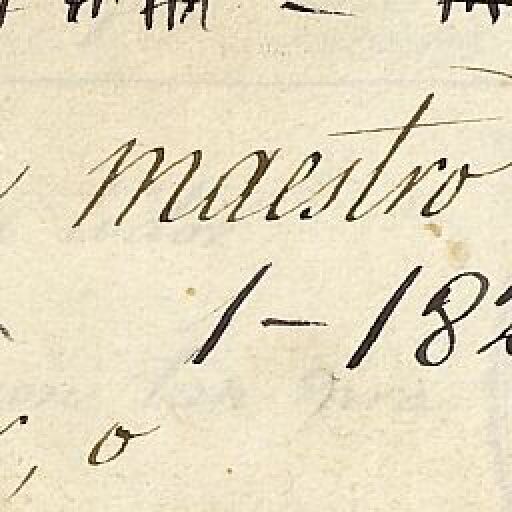 maestro
1-182
, o